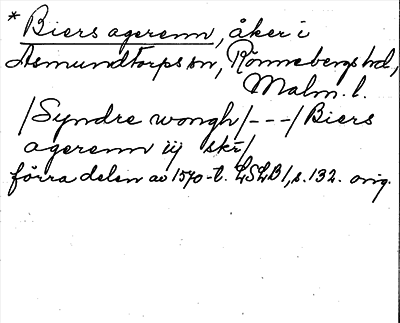 * Biers agerenn, åker i
Asmundtorps sn, Rönnebergs hd,
Malm. l.
/Syndre wongh/---/Biers
agerenn iij skr/
förra delen av 1570-t. LSLB1, s. 132. orig.